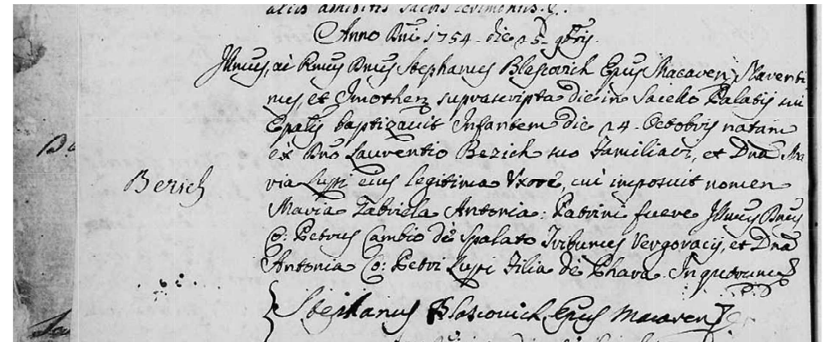 aliis adhibitis sacris cerimoniis &.
Anno Dni 1754. die 25. 9bris.
Illmus, ac Rmus Dnus Stephanus Blascovich Epus Macaren
nus, et suprascripta die in Sacello Palatii sui
Epalis baptizavit Infantem die 24. Octobris natam
ex Dno Laurentio Bezich suo Familiari, et Dna Ma
Berich
ria Lupi eius legitima Uxore, cui imposuit nomen
Maria Gabriela Antonia: Patrini fuere Illmus Dnus
Co: Petrus Cambio de Spalato Tribunus Vergoraci, et Dna
Antonia Co: Petri Lupi Filia de Phara. In quorum &
Stephanus Blascovich Epus Macaren